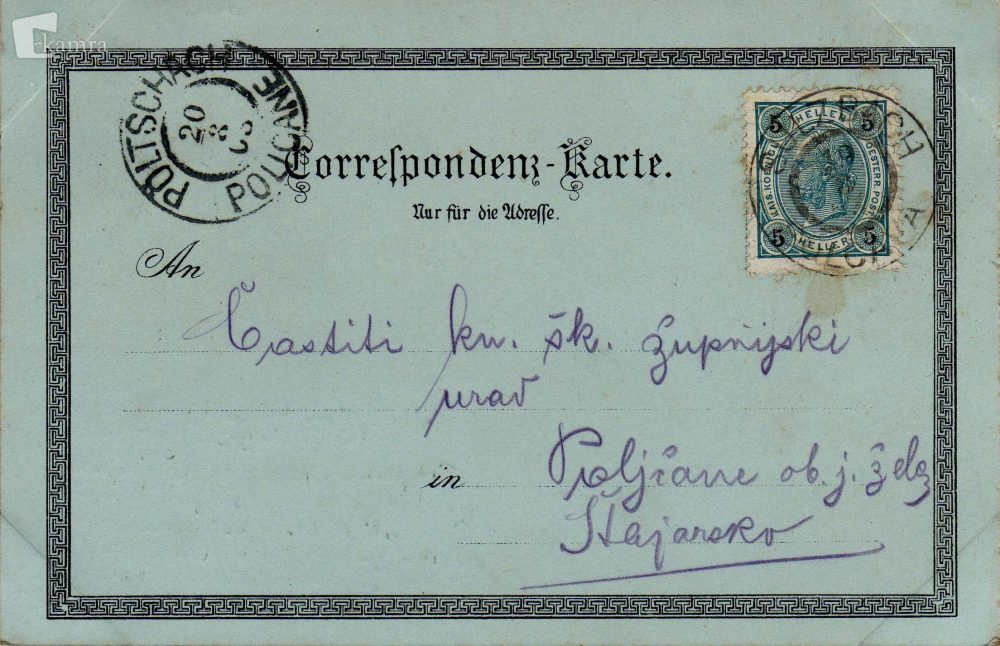 kamra
PÖLTSCHACH
POLIČANE
20
Correspondenz-Karte.
Nur für die Adresse.
5 HELLER 5
KAIS. KOENIGL. OESTERR. POST
5 HELLER 5
An
Častiti kn. šk. župnijski
urad
in Poljčane ob. j. želez
Štajarsko